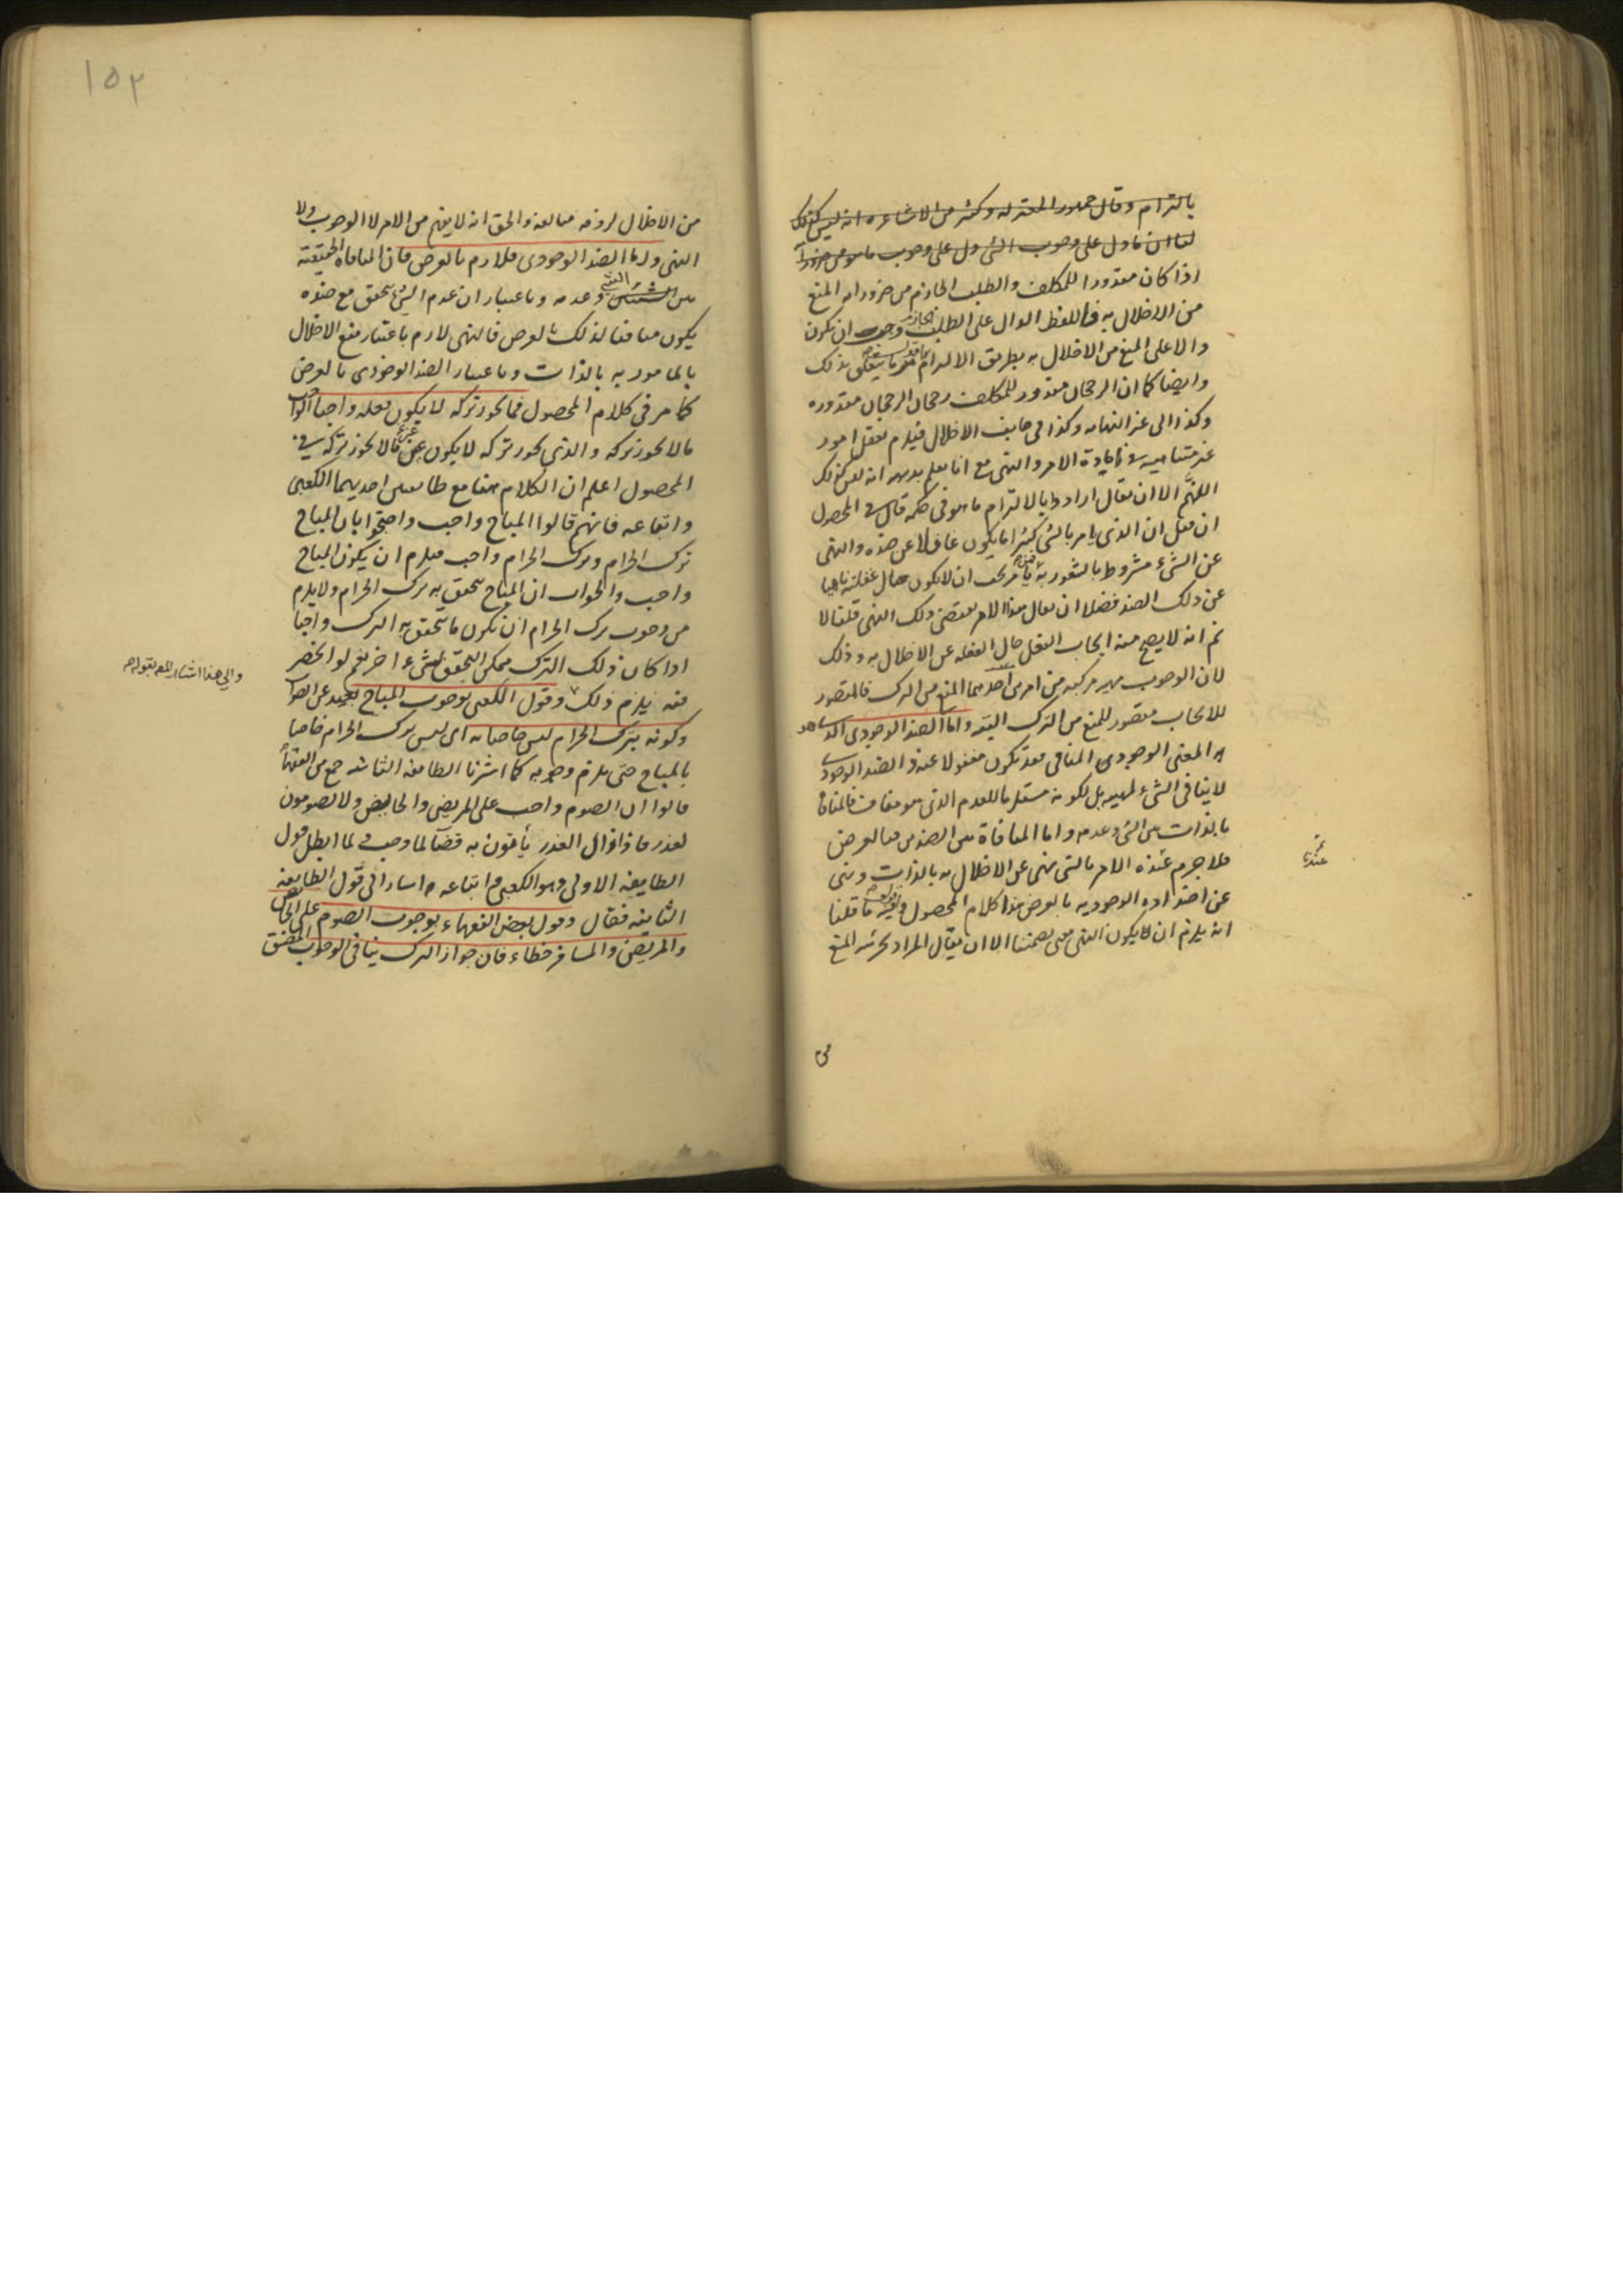 بالتزام وقال جمهور المعتزله وكثير من الاشاعره انه ليس كذلك
لنا ان ما دل على وجوب الشئ دل على وجوب ما هو من ضروراته
اذا كان مقدورا للمكلف والطلب الجازم من ضروراته المنع
من الاخلال به فاللفظ الدال على الطلب الجازم وجب ان يكون
دالا على المنع من الاخلال به بطريق الالتزام بذلك
وايضا كما ان الرجحان مقدور للمكلف رجحان الرجحان مقدوره
وكذا الى غير النهايه وكذا فى جانب الاخلال فيلزم تعقل امور
غير متناهيه فى افادة الامر والنهى مع انا نعلم بديهه انه ليس كذلك
اللهم الا ان يقال ارادوا بالالتزام ما هو فى حكمه قال فى المحصول
ان قيل ان الذى يامر بالشئ كثيرا ما يكون غافلا عن ضده والنهى
عن الشئ مشروط بالشعور به فالآمر يجب ان لا يكون حال غفلته ناهيا
عن ذلك الضد فضلا ان يقال هذا الامر يقتضى ذلك النهى قلنا لا
نم انه لا يصح منه ايجاب الفعل حال الغفله عن الاخلال به وذلك
لان الوجوب مهيه مركبه من امرين احدهما المنع من الترك فالمتصور
للايجاب متصور للمنع من الترك البته واما الضد الوجودى الذى هو
المعنى الوجودى المنافى فقد يكون مغفولا عنه والضد الوجودى
لا ينافى الشئ لمهيه بل لكونه مستلزما للعدم الذى هو مناف فالمنافاة
بالذات بين الشئ وعدمه واما المنافاة بين الضدين فبالعرض
فلا جرم عنده الامر بالشئ نهى عن الاخلال به بالذات ونهى
عن اضداده الوجوديه بالعرض هذا كلام المحصول وفيه ما قلنا
انه يلزم ان لا يكون النهى تضمنا الا ان يقال المراد بجزئه المنع
عنده
من
١٥٢
من الاخلال لزومه مبالغه والحق انه لا يفهم من الامر الا الوجوب ولا
النهى واما الضد الوجودى فلازم بالعرض فان المنافاة الحقيقية
بين الشئ وعدمه وباعتبار ان عدم الشئ يتحقق مع ضده
يكون منافيا لذلك بالعرض فالنهى لازم باعتبار منع الاخلال
بالمامور به بالذات وباعتبار الضد الوجودى بالعرض
كما مر فى كلام المحصول فما يجوز تركه لا يكون فعله واجبا الواجب
ما لا يجوز تركه والذى يجوز تركه لا يكون عين ما لا يجوز تركه فى
المحصول اعلم ان الكلام هنا مع طائفتين احديهما الكعبى
واتباعه فانهم قالوا المباح واجب واحتجوا بان المباح
ترك الحرام وترك الحرام واجب فيلزم ان يكون المباح
واجب والجواب ان المباح يتحقق به ترك الحرام ولا يلزم
من وجوب ترك الحرام ان يكون ما يتحقق به الترك واجبا
اذا كان ذلك الترك ممكن التحقق بشئ اخر نعم لو انحصر
فيه يلزم ذلك وقول الكعبى بوجوب المباح بعيد عن الصواب
والى هذا اشار المص بقوله
وكونه بترك الحرام ليس خاصا به اى ليس ترك الحرام خاصا
بالمباح حتى يلزم وجوبه كما اشرنا الطائفه الثانيه جمع من الفقهاء
قالوا ان الصوم واجب على المريض والحايض ولا يصومون
لعذر فاذا زال العذر يأتون به قضآ لما وجب ولما ابطل قول
الطايفه الاولى وهو الكعبى واتباعه اشار الى قول الطايفه
الثانيه فقال وقول بعض الفقهاء بوجوب الصوم على الحايض
والمريض والمسافر خطاء فان جواز الترك ينافى الوجوب المضيق